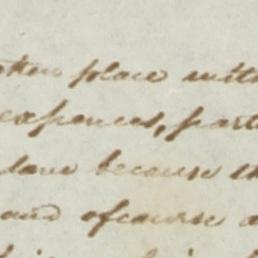 place with
expences, part
because th
and ofcourse a